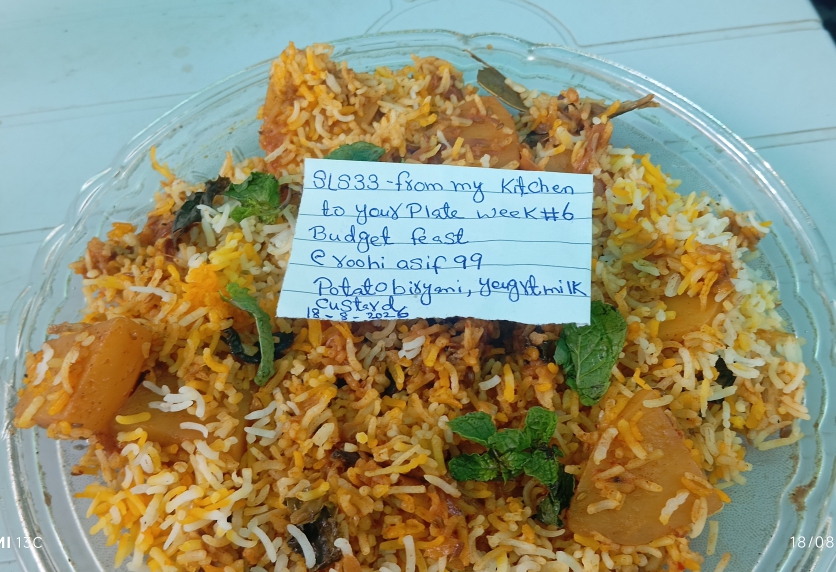 SLS33-from my Kitchen
to your Plate week #6
Budget feast
@roohiasif99
Potato biryani, yougrt milk
Custard
18-8-2026
MI 13C
18/08